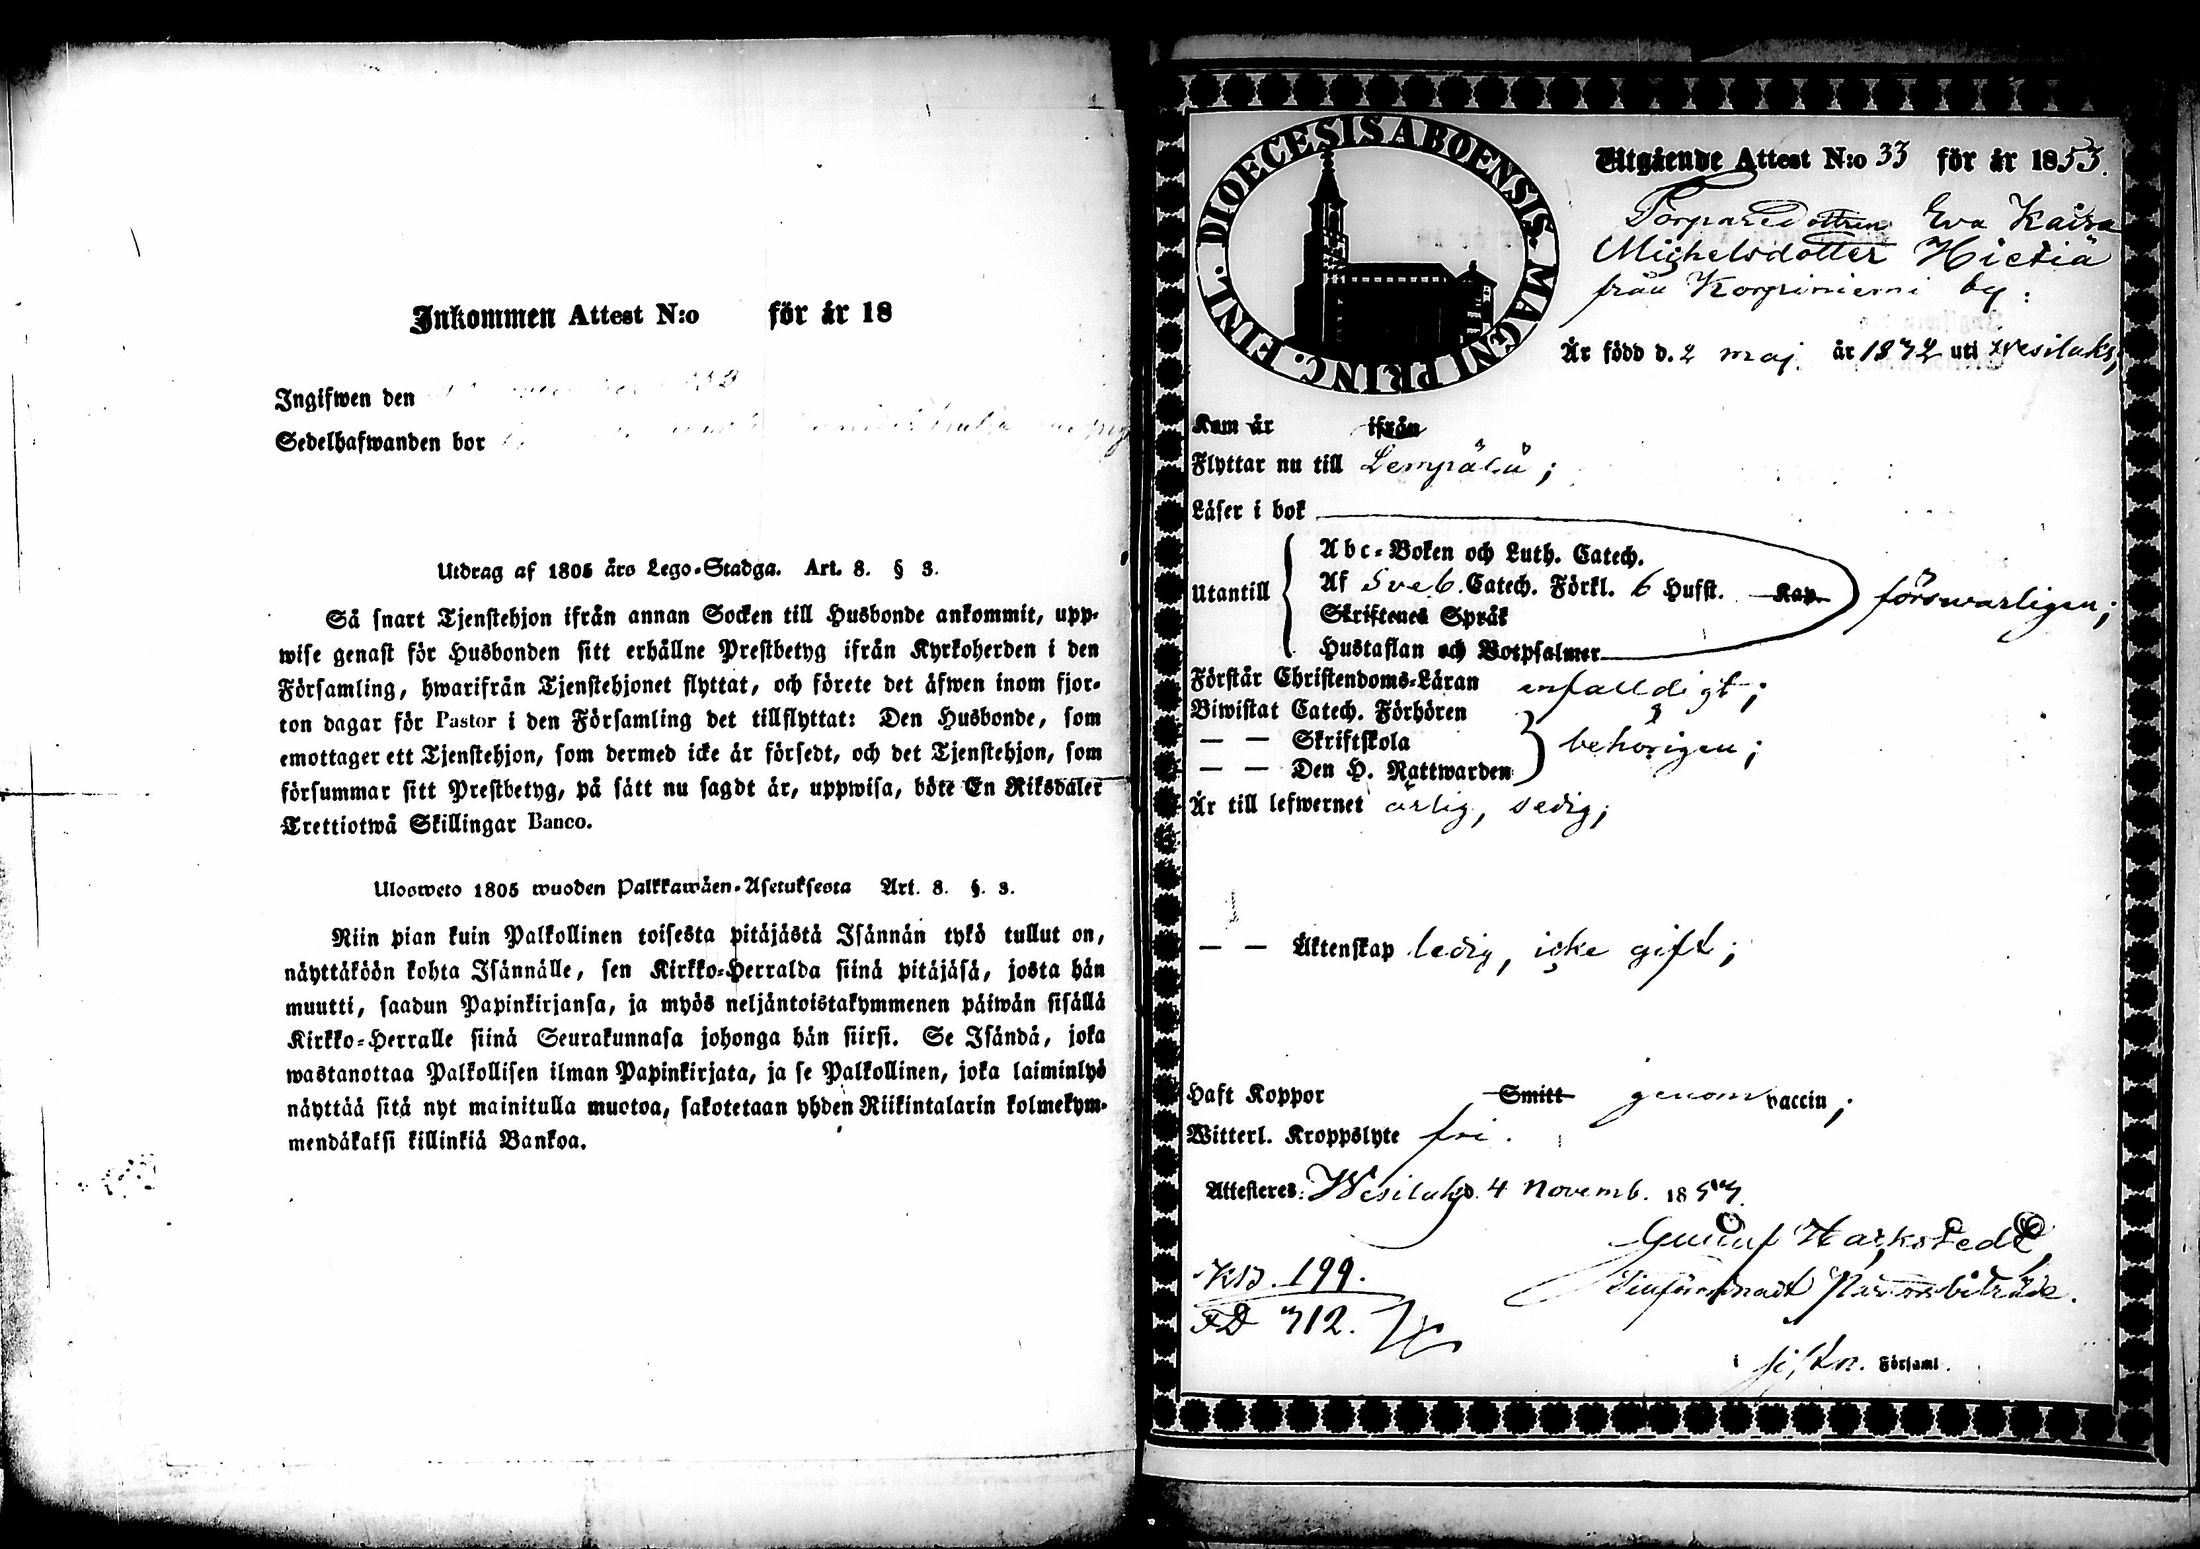 Inkommen Attest N:o för år 18
Ingifwen den
Sedelhafwanden bor
Utdrag af 1805 års Lego-Stadga. Art. 8. § 3.
Så snart Tjenstehjon ifrån annan Socken till Husbonde ankommit, upp-
wise genast för Husbonden sitt erhållne Prestbetyg ifrån Kyrkoherden i den
Församling, hwarifrån Tjenstehjonet flyttat, och förete det äfwen inom fjor-
ton dagar för Pastor i den Församling det tillflyttat: Den Husbonde, som
emottager ett Tjenstehjon, som dermed icke är försedt, och det Tjenstehjon, som
försummar sitt Prestbetyg, på sätt nu sagdt är, uppwisa, böte En Riksdaler
Trettiotwå Skillingar Banco.
Ulosweto 1805 wuoden Palkkawäen-Asetuksesta Art. 8. §. 3.
Niin pian kuin Palkollinen toisesta pitäjästä Isännän tykö tullut on,
näyttäköön kohta Isännälle, sen Kirkko-Herralda siinä pitäjäsä, josta hän
muutti, saadun Papinkirjansa, ja myös neljäntoistakymmenen päiwän sisällä
Kirkko-Herralle siinä Seurakunnasa johonga hän siirsi. Se Isändä, joka
wastanottaa Palkollisen ilman Papinkirjata, ja se Palkollinen, joka laiminlyö
näyttää sitä nyt mainitulla muotoa, sakotetaan yhden Riikintalarin kolmekym-
mendäkaksi killinkiä Bankoa.
DIOECESIS ABOENSIS. MAGNI PRINC. FINL.
Utgående Attest N:o 33 för år 1853.
Torparedottren Eva Kaisa
Michelsdotter Hietiä
från Korpiniemi by:
Är född d. 2 maj år 1832 uti Wesilaks,
Kom år ifrån
Flyttar nu till Lempälä;
Läser i bok
Utantill
Abc-Boken och Luth. Catech.
Af Sveb. Catech. Förkl. 6 Hufst. Kap. försvarligen;
Skriftenes Språk
Hustaflan och Botpsalmer
Förstår Christendoms-Läran enfalldigt;
Biwistat Catech. Förhören
— — Skriftskola behörigen;
— — Den H. Nattwarden
Är till lefwernet ärlig, sedig;
— — Äktenskap ledig, icke gift;
Haft Koppor Smitt genom vaccin;
Witterl. Kroppslyte fri.
Attesteres: Wesilaks d. 4 Novemb. 1853.
Gustaf
KB. 199.
FD 312.
i Församl.